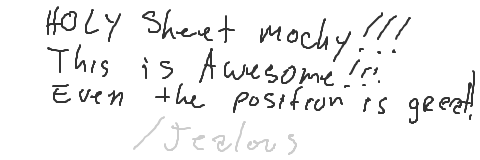 HOLY Sheet mochy!!!
This is Awesome!!!
Even the position is great!
/Jealous